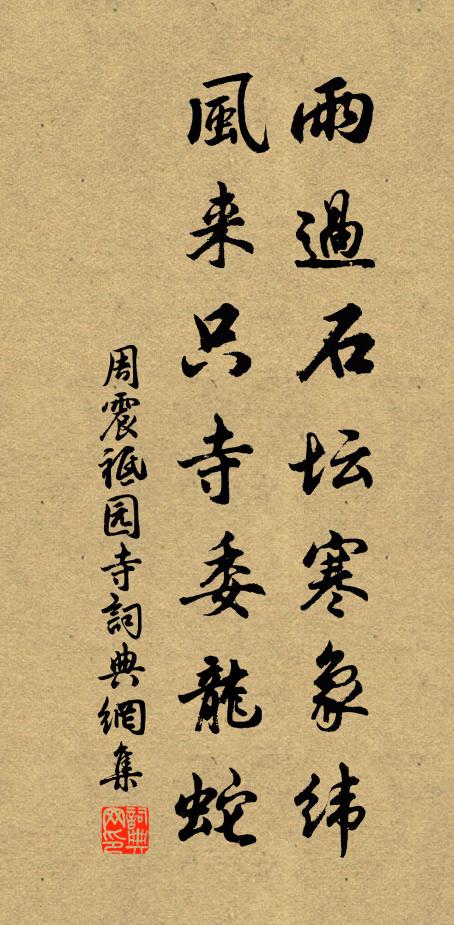 雨過石坛寒象緯
風来只寺委龍蛇
周震祗园寺詞典網集
詞典网印